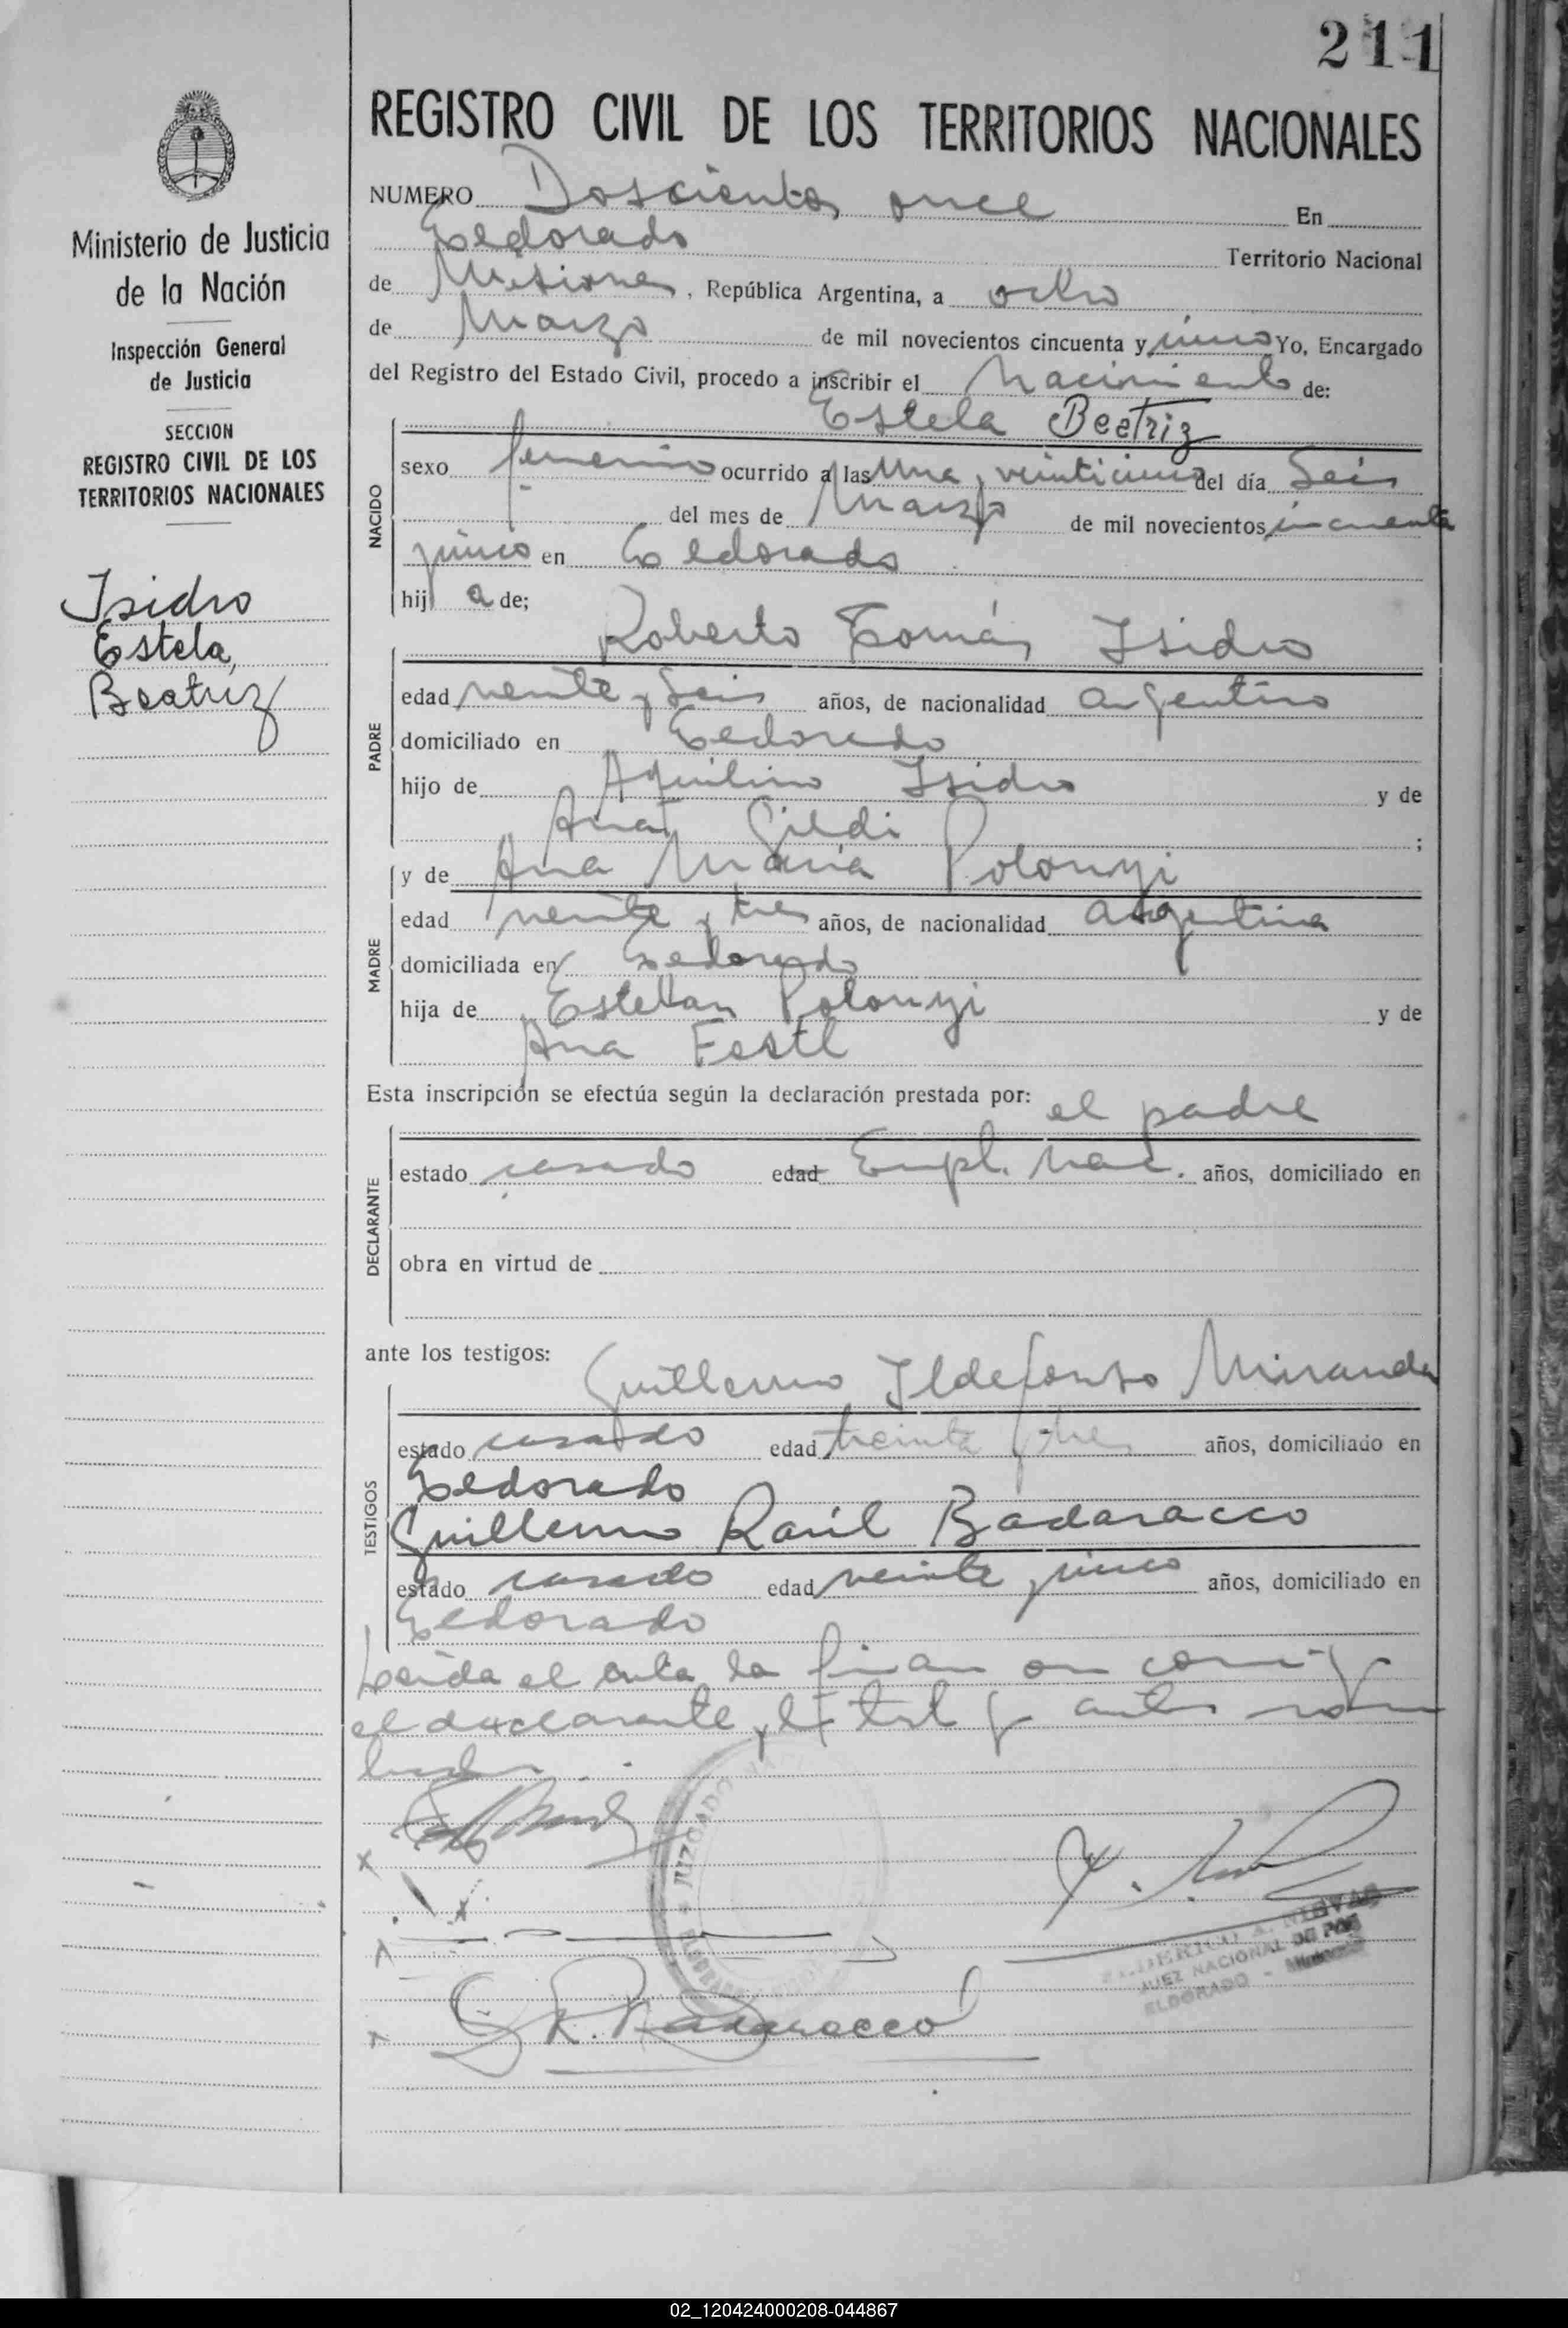 211
REGISTRO CIVIL DE LOS TERRITORIOS NACIONALES
Ministerio de Justicia
de la Nación
Inspección General
de Justicia
SECCION
REGISTRO CIVIL DE LOS
TERRITORIOS NACIONALES
Isidro
Estela,
Beatriz
NUMERO Doscientos once En
Eldorado Territorio Nacional
de Misiones, República Argentina, a ocho
de Marzo de mil novecientos cincuenta y cinco Yo, Encargado
del Registro del Estado Civil, procedo a inscribir el Nacimiento de:
Estela Beatriz
NACIDO
sexo femenino ocurrido a las Una y veinticinco del día Seis
del mes de Marzo de mil novecientos cincuenta
y cinco en Eldorado
hij a de;
Roberto Tomás Isidro
PADRE
edad veinte y Seis años, de nacionalidad argentino
domiciliado en Eldorado
hijo de Aquilino Isidro y de
Ana Gildi ;
y de Ana María Polonyi
MADRE
edad veinte y tres años, de nacionalidad argentina
domiciliada en Eldorado
hija de Esteban Polonyi y de
Ana Festl
Esta inscripción se efectúa según la declaración prestada por: el padre
DECLARANTE
estado casado edad Empl. Nac. años, domiciliado en
obra en virtud de
ante los testigos:
Guillermo Ildefonso Miranda
TESTIGOS
estado casado edad treinta y tres años, domiciliado en
Eldorado
Guillermo Raúl Badaracco
estado casado edad veinte y cinco años, domiciliado en
Eldorado
Leida el acta la firman con
el declarante y
JUZGADO
G. R. Badaracco
JUEZ NACIONAL DE PAZ
ELDORADO - Misiones
02_120424000208-044867